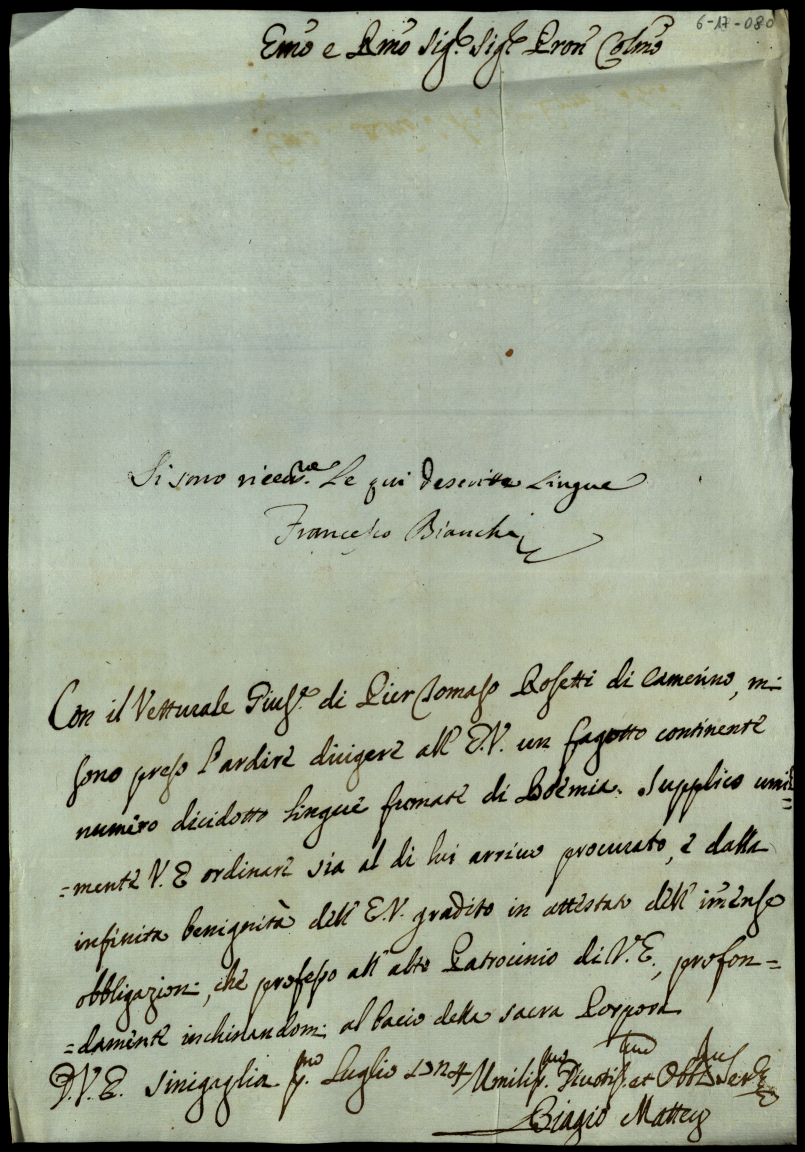 6-17-080
Emo e Rmo Sigr. Sigr. Pron Colmo
Si sono riceute Le qui descritte Lingue
Francesco Bianchi
Con il Vetturale Giuse. di Pier Tomaso Rosetti di Camerino, mi
sono preso l'ardire dirigere all' E.V. un fagotto continente
numero dicidotto lingue fumate di Boemia. Supplico umil
=mente V.E ordinare sia al di lui arrivo procurato, e dalla
infinita benignità dell' E.V. gradito in attestato dell' imense
obbligazioni, che professo all' alto Patrocinio di V.E., profon=
=damente inchinandomi al bacio della sacra Porpora
D.V.E. Sinigaglia pmo. Luglio 1724 Umilismo. Divotismo. et Obbmo Serre
Biagio Mattei